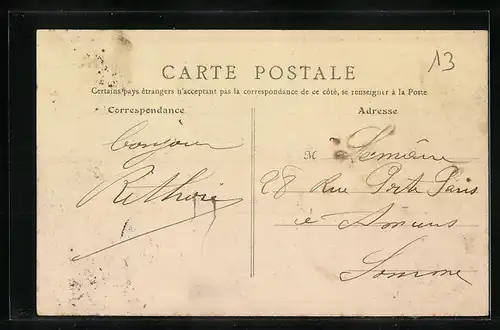 13
CARTE POSTALE
Certains pays étrangers n'acceptant pas la correspondance de ce côté, se renseigner à la Poste
Correspondance
Adresse
bonjour
M
28 Rue Porte Paris
à Amiens
Somme